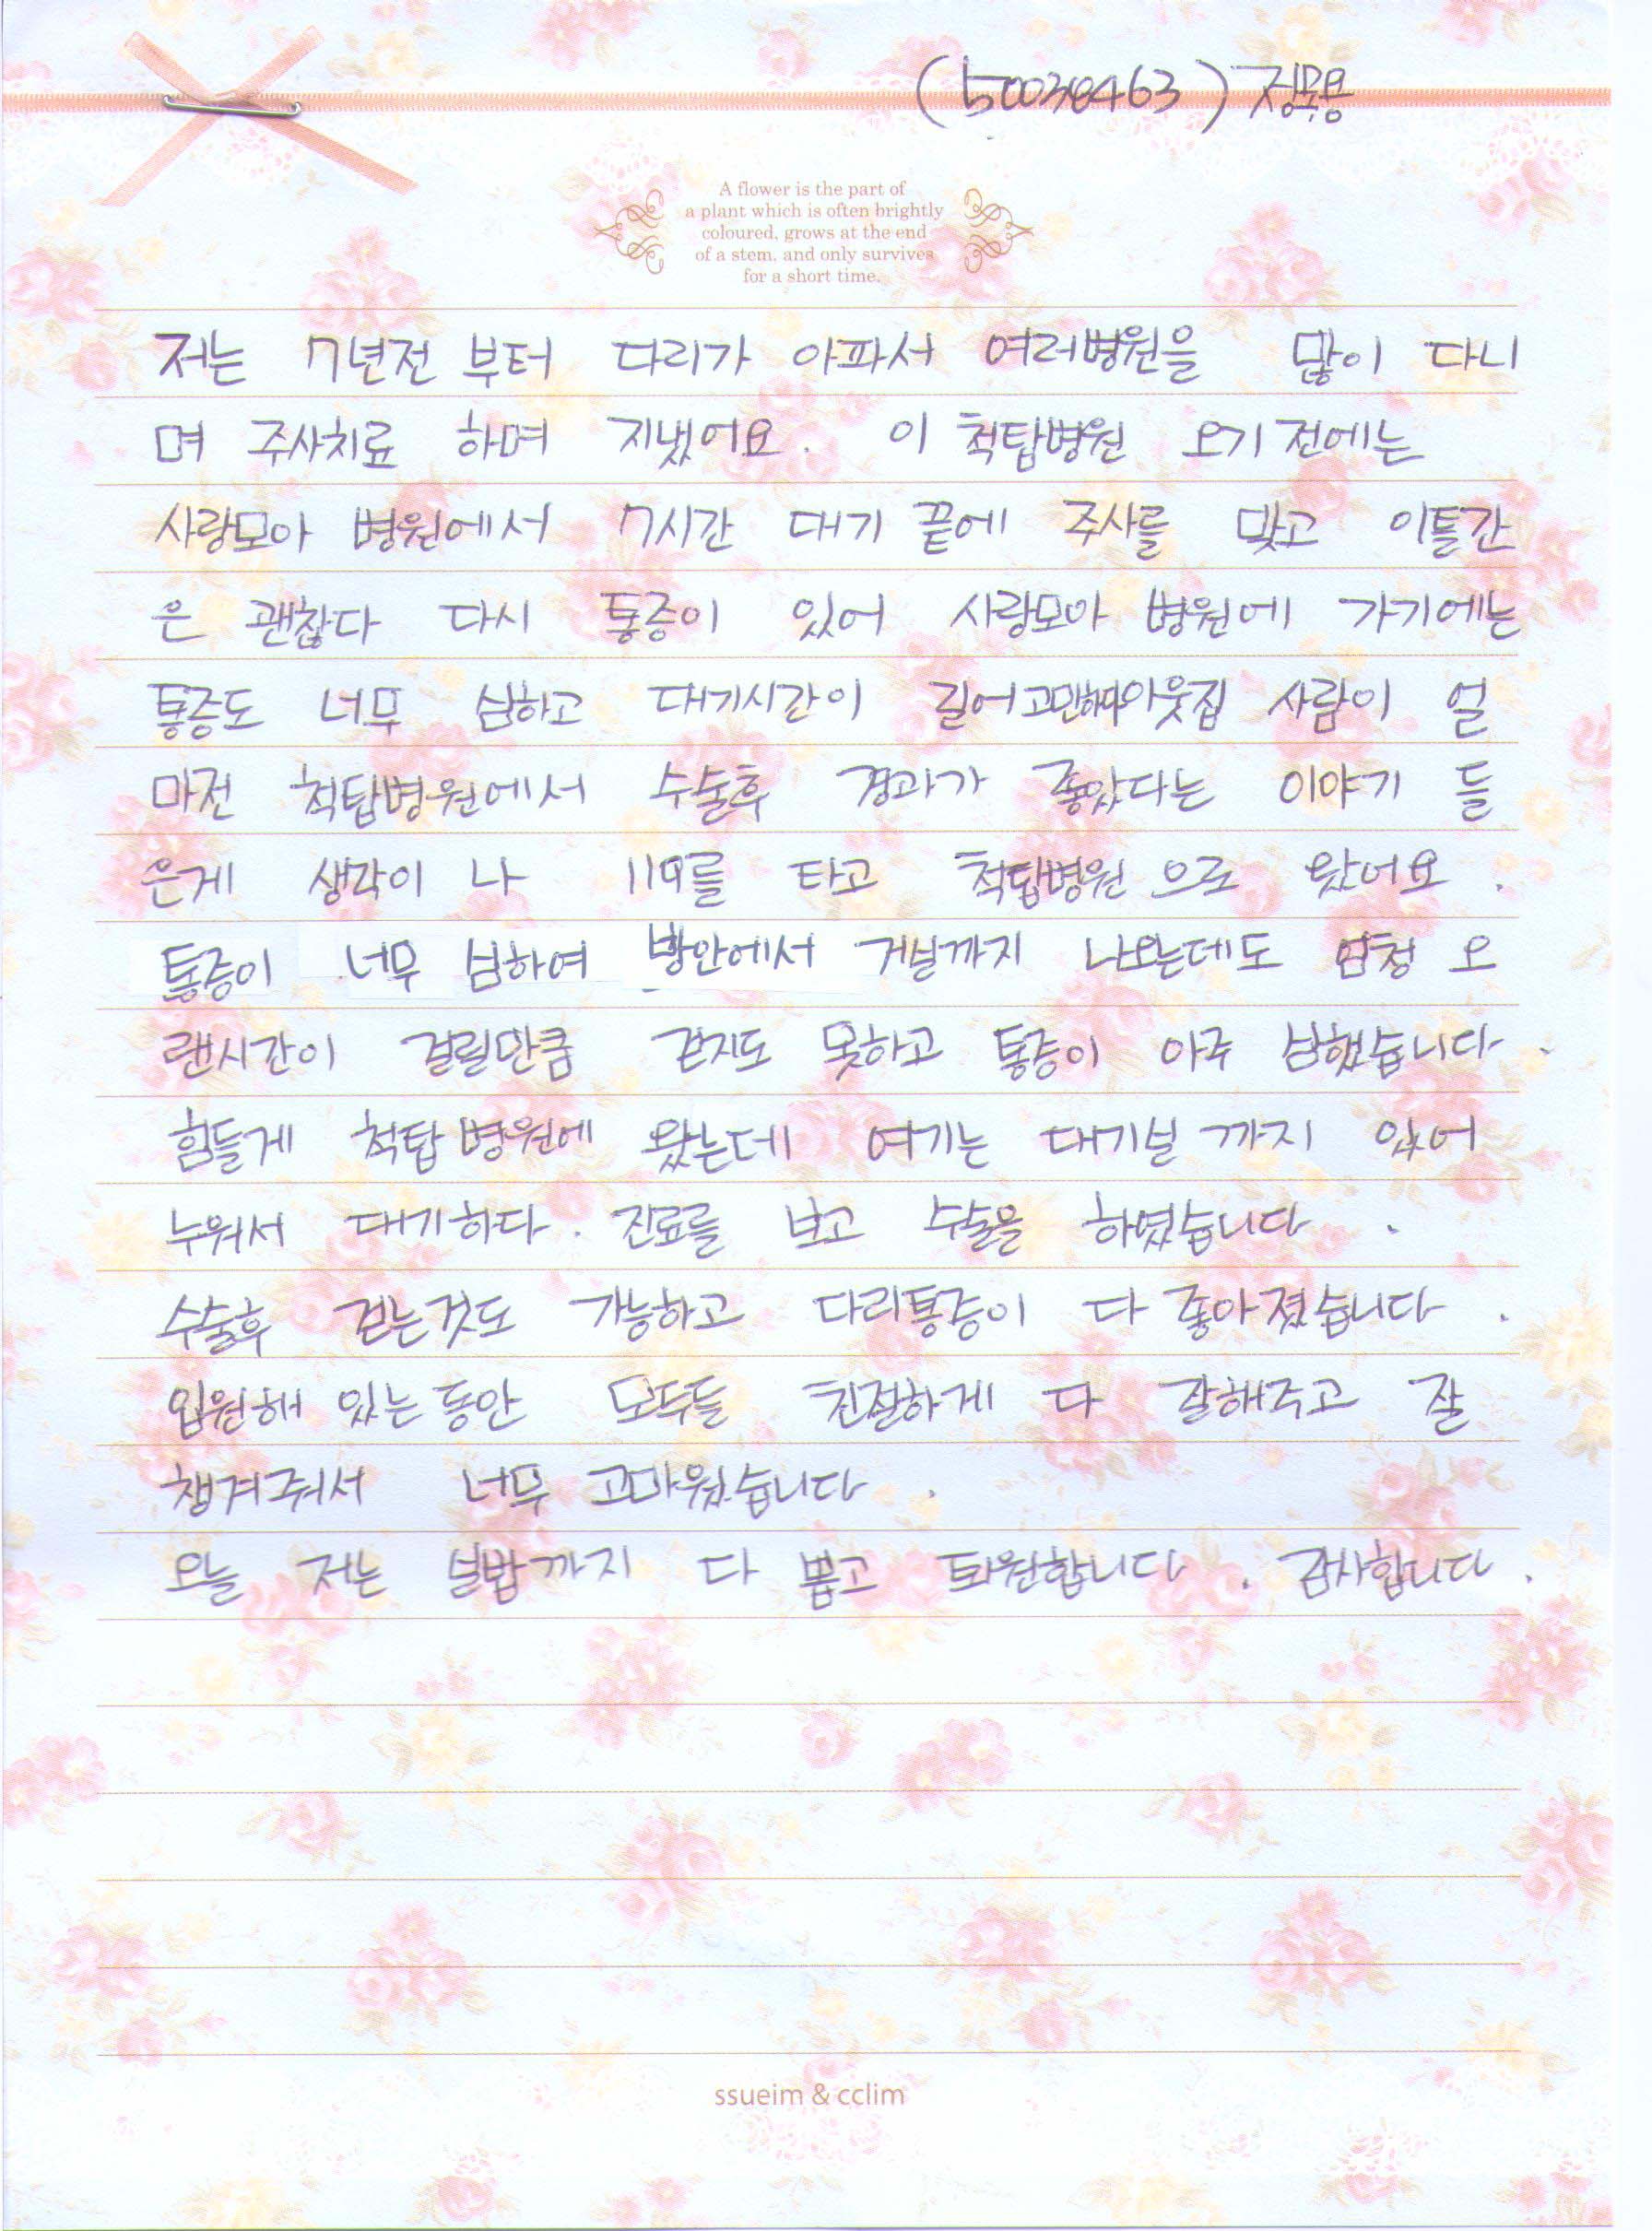 (50038463) 정목용
A flower is the part of
a plant which is often brightly
coloured, grows at the end
of a stem, and only survives
for a short time.
저는 7년전 부터 다리가 아파서 여러병원을 많이 다니
며 주사치료 하며 지냈어요. 이 척탑병원 오기 전에는
사랑모아 병원에서 7시간 대기 끝에 주사를 맞고 이틀간
은 괜찮다 다시 통증이 있어 사랑모아 병원에 가기에는
통증도 너무 심하고 대기시간이 길어 고민하다 이웃집 사람이 얼
마전 척탑병원에서 수술후 경과가 좋았다는 이야기 들
은게 생각이 나 119를 타고 척탑병원 으로 왔어요.
통증이 너무 심하여 방안에서 거실까지 나오는데도 엄청 오
랜시간이 걸릴만큼 걷지도 못하고 통증이 아주 심했습니다.
힘들게 척탑병원에 왔는데 여기는 대기실 까지 있어
누워서 대기하다. 진료를 보고 수술을 하였습니다.
수술후 걷는것도 가능하고 다리통증이 다 좋아졌습니다.
입원해 있는동안 모두들 친절하게 다 잘해주고 잘
챙겨줘서 너무 고마웠습니다.
오늘 저는 실밥까지 다 뽑고 퇴원합니다. 감사합니다.
ssueim & cclim